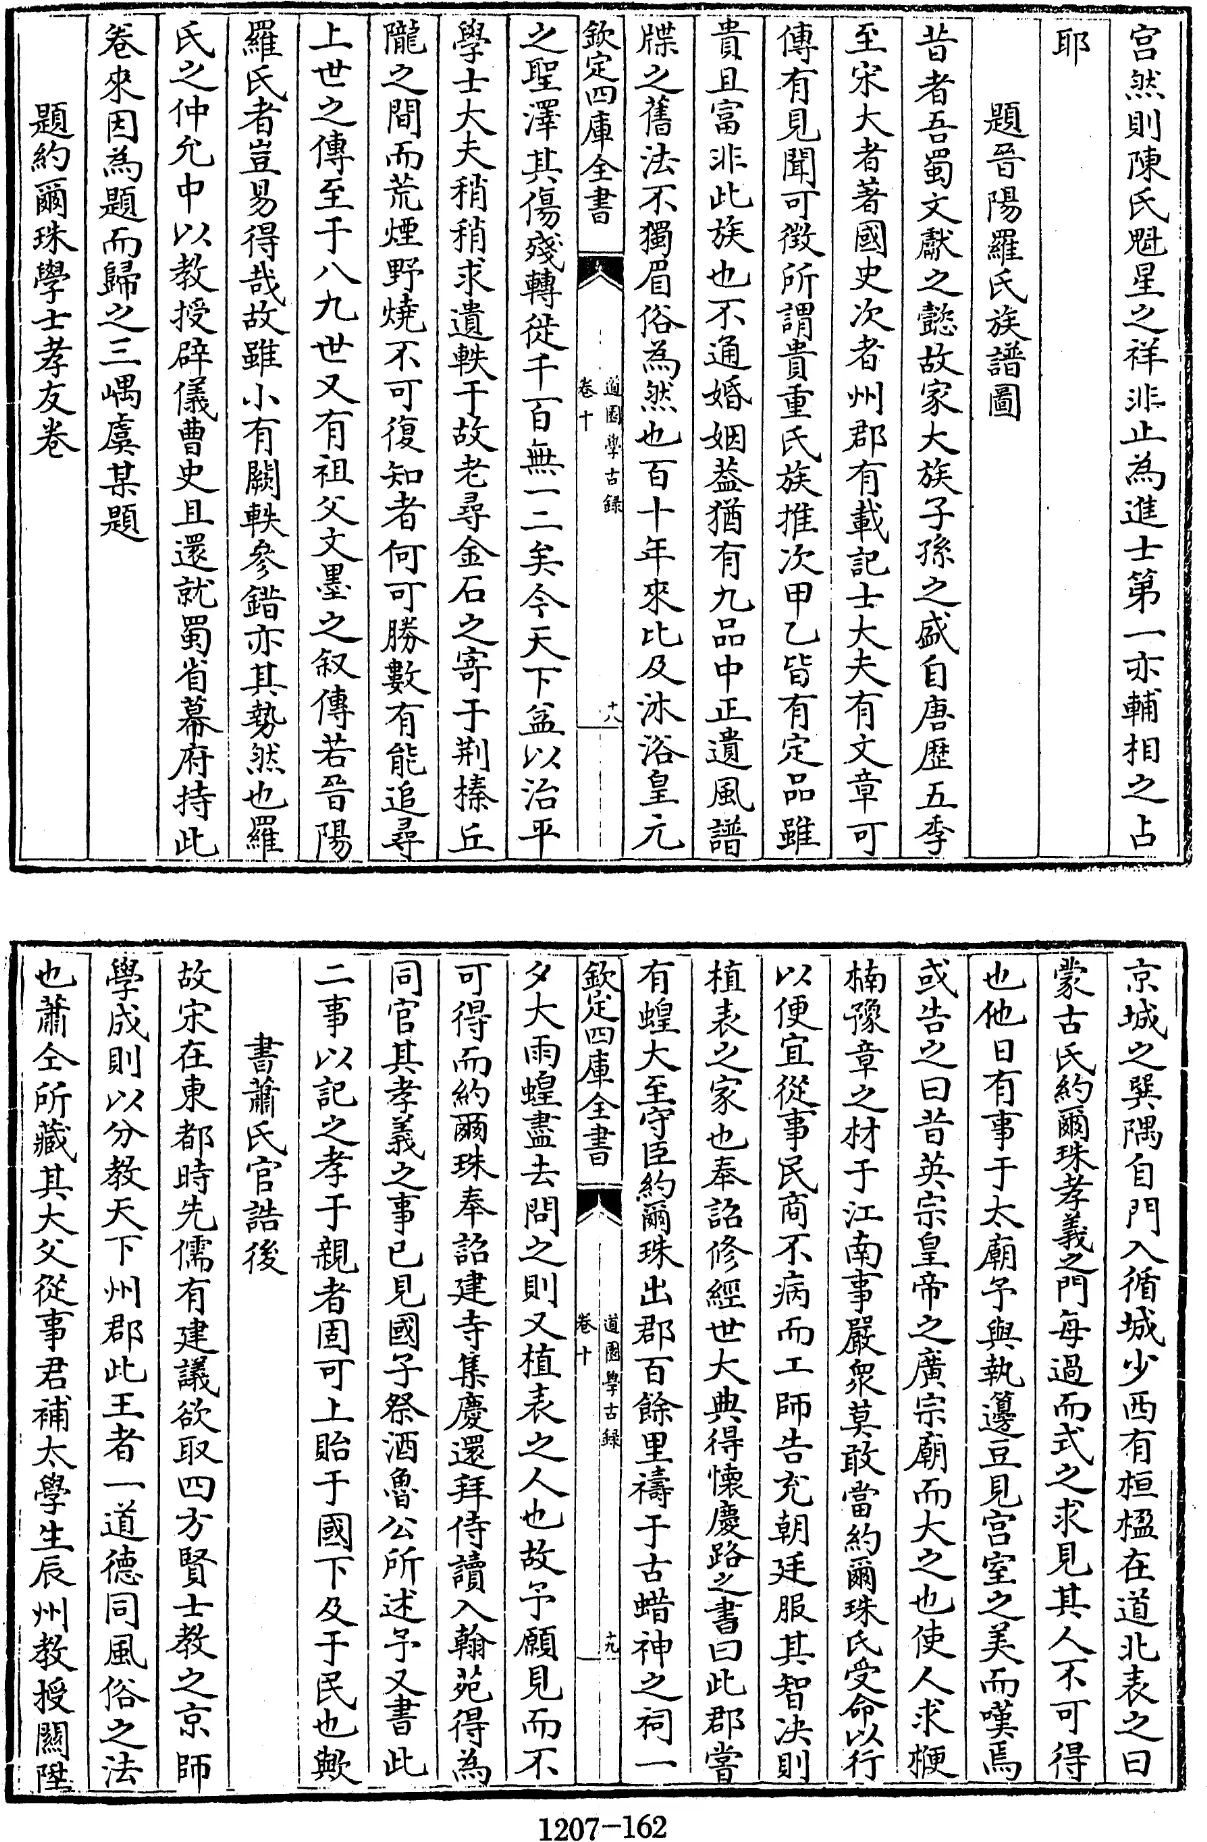 宫然則陳氏魁星之祥非止為進士第一亦輔相之占
耶
題晉陽羅氏族譜圖
昔者吾蜀文獻之懿故家大族子孫之盛自唐歷五季
至宋大者著國史次者州郡有載記士大夫有文章可
傳有見聞可徴所謂貴重氏族推次甲乙皆有定品雖
貴且富非此族也不通婚姻葢猶有九品中正遺風譜
牒之舊法不獨眉俗為然也百十年來比及沐浴皇元
欽定四庫全書
道園學古録
卷十
十八
之聖澤其傷殘轉徙千百無一二矣今天下益以治平
學士大夫稍稍求遺軼于故老尋金石之寄于荆榛丘
隴之間而荒煙野燒不可復知者何可勝數有能追尋
上世之傳至于八九世又有祖父文墨之叙傳若晉陽
羅氏者豈易得哉故雖小有闕軼參錯亦其勢然也羅
氏之仲允中以教授辟儀曹史且還就蜀省幕府持此
卷來因為題而歸之三嵎虞某題
題約爾珠學士孝友卷
京城之巽隅自門入循城少西有桓楹在道北表之曰
蒙古氏約爾珠孝義之門每過而式之求見其人不可得
也他日有事于太廟予與執籩豆見宫室之美而嘆焉
或告之曰昔英宗皇帝之廣宗廟而大之也使人求楩
楠豫章之材于江南事嚴衆莫敢當約爾珠氏受命以行
以便宜從事民商不病而工師告充朝廷服其智决則
植表之家也奉詔修經世大典得懷慶路之書曰此郡嘗
有蝗大至守臣約爾珠出郡百餘里禱于古蜡神之祠一
欽定四庫全書
道園學古録
卷十
十九
夕大雨蝗盡去問之則又植表之人也故予願見而不
可得而約爾珠奉詔建寺集慶還拜侍讀入翰苑得為
同官其孝義之事已見國子祭酒魯公所述予又書此
二事以記之孝于親者固可上貽于國下及于民也歟
書蕭氏官誥後
故宋在東都時先儒有建議欲取四方賢士教之京師
學成則以分教天下州郡此王者一道德同風俗之法
也蕭仝所藏其大父從事君補太學生辰州教授關陞
1207-162